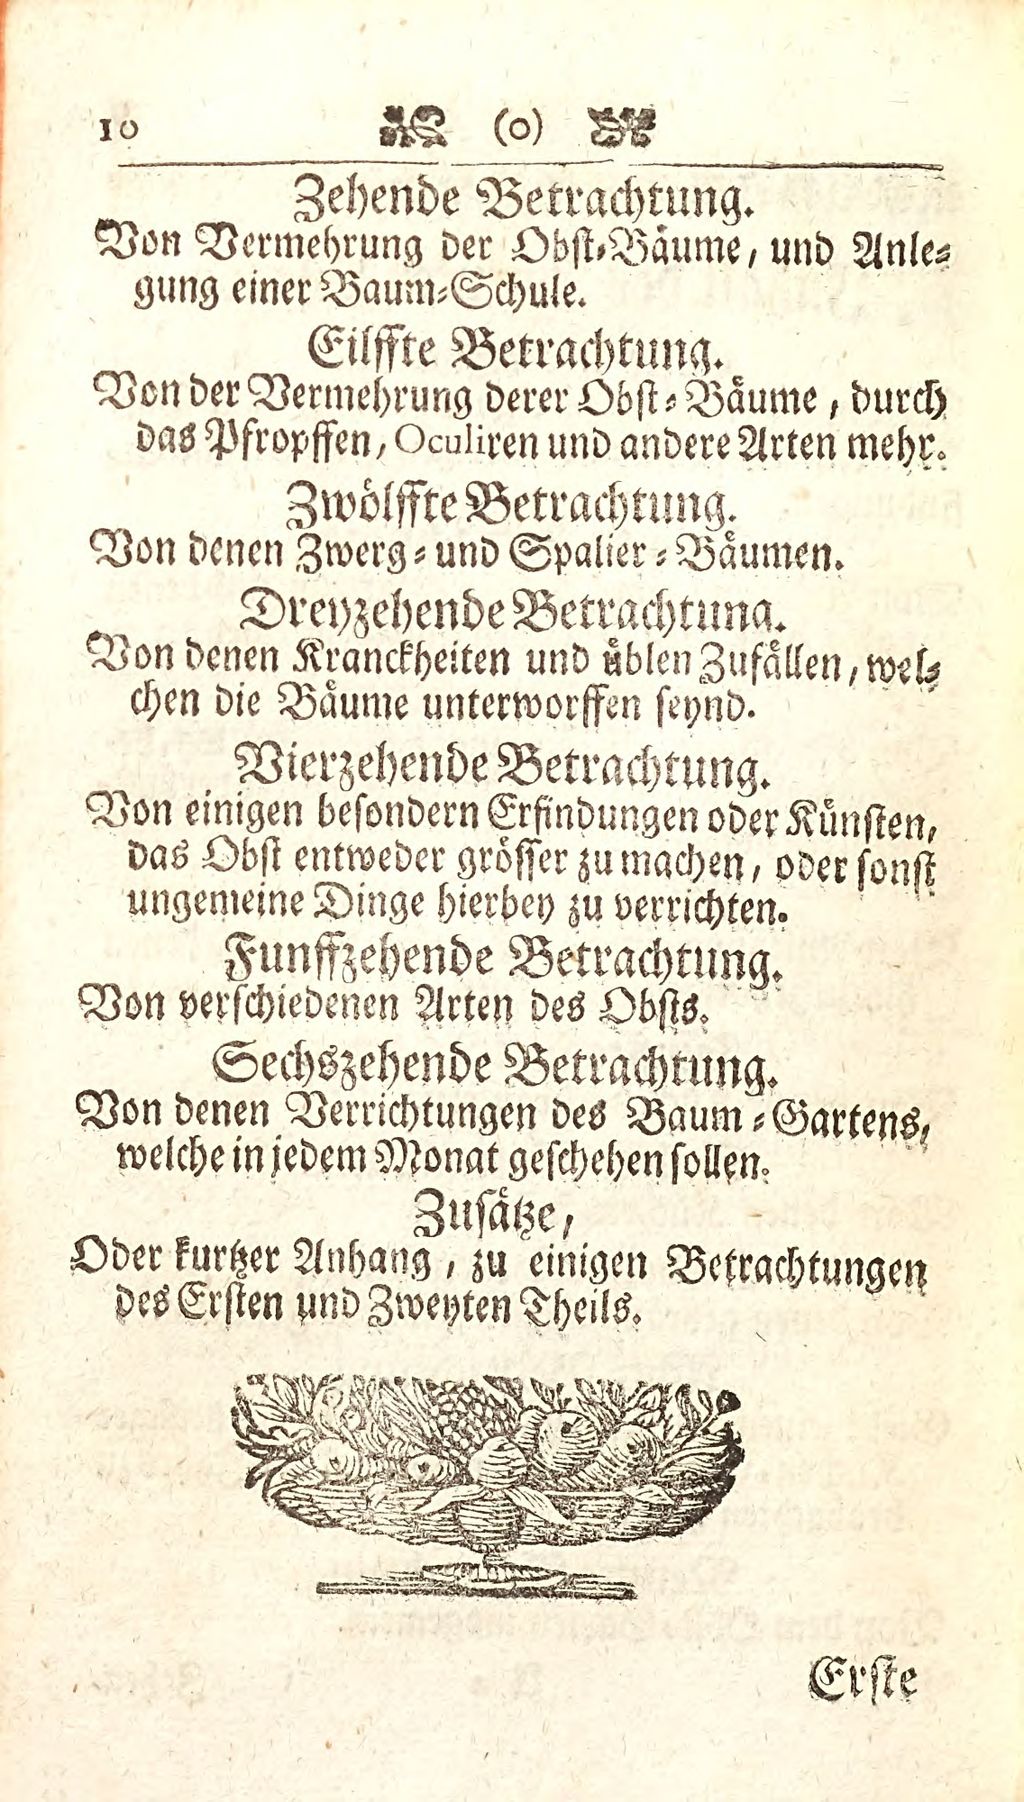 10 (o)
Zehende Betrachtung.
Von Vermehrung der Obst-Bäume, und Anle-
gung einer Baum-Schule.
Eilffte Betrachtung.
Von der Vermehrung derer Obst-Bäume, durch
das Pfropffen, Oculiren und andere Arten mehr.
Zwölffte Betrachtung.
Von denen Zwerg- und Spalier-Bäumen.
Dreyzehende Betrachtung.
Von denen Kranckheiten und üblen Zufällen, wel-
chen die Bäume unterworffen seynd.
Vierzehende Betrachtung.
Von einigen besondern Erfindungen oder Künsten,
das Obst entweder grösser zu machen, oder sonst
ungemeine Dinge hierbey zu verrichten.
Funffzehende Betrachtung.
Von verschiedenen Arten des Obsts.
Sechszehende Betrachtung.
Von denen Verrichtungen des Baum-Gartens,
welche in jedem Monat geschehen sollen.
Zusätze,
Oder kurtzer Anhang, zu einigen Betrachtungen
des Ersten und Zweyten Theils.
Erste